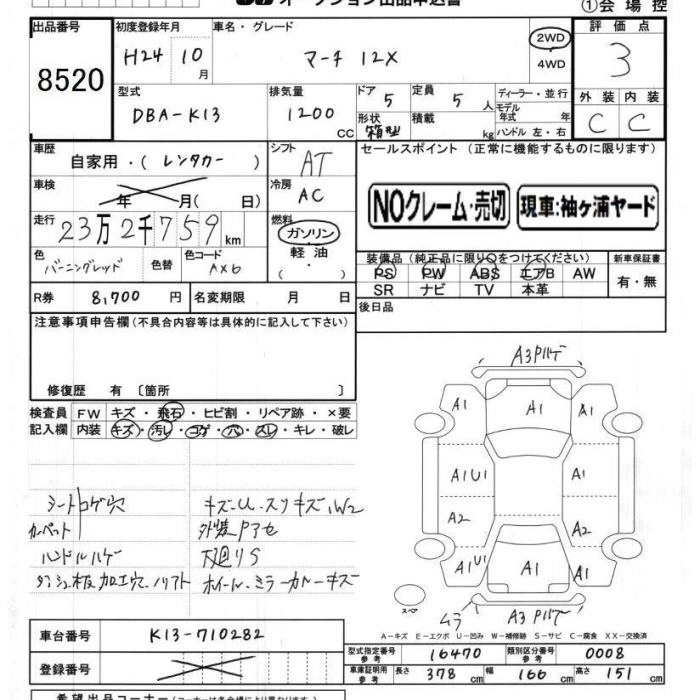 オークション出品申込書
①会場控
出品番号 8520
初度登録年月 H24 10月
車名・グレード マーチ 12X
2WD 4WD
評価点 3
型式 DBA-K13
排気量 1200 CC
ドア 5 形状 箱型
定員 5 人 積載 kg
ディーラー・並行
モデル年式 年式
ハンドル 左・右
外装 C 内装 C
車歴 自家用・(レンタカー)
シフト AT
セールスポイント (正常に機能するものに限ります)
車検 年 月(日)
冷房 AC
NOクレーム・売切 現車:袖ヶ浦ヤード
走行 23万2千759km
燃料 ガソリン 軽油
色 バーニングレッド 色替 色コード AX6
装備品 (純正品に限り○をつけてください) 新車保証書
PS PW ABS エアB AW 有・無
SR ナビ TV 本革
R券 8,700円 名変期限 月 日
後日品
注意事項申告欄(不具合内容等は具体的に記入して下さい)
修復歴 有 〔箇所 〕
検査員記入欄
FW キズ・飛石・ヒビ割・リペア跡・×要
内装 キズ・汚レ・コゲ・穴・スレ・キレ・破レ
シートコゲ穴 キズ・U・スリキズ,W2
カーペット 外装Pアセ
ハンドルハゲ 下廻りS
ダッシュ板加工穴・ノリフト ホイール・ミラーカバーキズ
A3Pハゲ
A1 A1 A1
A1U1 A1
A2 A2
A1U1 A1 A1
スペア
ムラ A3Pハゲ
A-キズ E-エクボ U-凹み W-補修跡 S-サビ C-腐食 XX-交換済
車台番号 K13-710282
型式指定番号 参考 16470 類別区分番号 参考 0008
登録番号
車庫証明用 参考 長さ 378cm 幅 166cm 高さ 151cm
希望出品コーナー